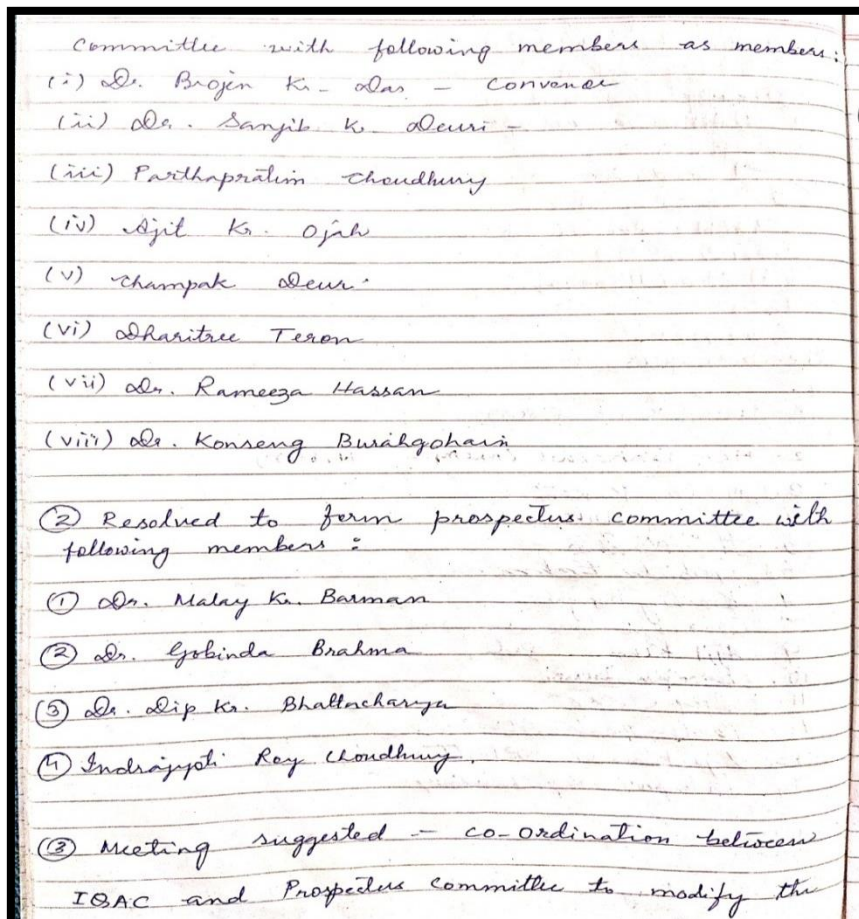 Committee with following members as members:
(i) Dr. Brojen Kr. Das - convenor
(ii) Dr. Sanjib K. Deuri -
(iii) Parthapratim Choudhury
(iv) Ajit Kr. Ojah
(v) Champak Deuri
(vi) Dharitree Teron
(vii) Dr. Rameeza Hassan
(viii) Dr. Konseng Burahgohain
② Resolved to form prospectus committee with
following members :
① Dr. Malay Kr. Barman
② Dr. Gobinda Brahma
③ Dr. Dip Kr. Bhattacharyya
④ Indrajyoti Roy Choudhury.
③ Meeting suggested - co-ordination between
IQAC and Prospectus Committee to modify the